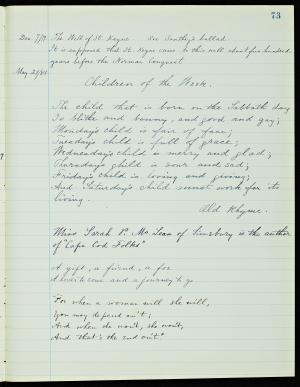 73
Dec. 7/17. The Well of St. Keyne. See Southey's ballad.
It is supposed that St. Keyne came to this well about five hundred
years before the Norman Conquest
May 21/41
Children of the Week.
The child that is born on the Sabbath day
Is blithe and bonny, and good and gay;
Monday's child is fair of face;
Tuesday's child is full of grace;
Wednesday's child is merry and glad;
Thursday's child is sour and sad;
Friday's child is loving and giving;
And Saturday's child must work for its
living.
Old Rhyme.
Miss Sarah P. Mc Lean of Simsbury is the author
of "Cape Cod Folks"
A gift, a friend, a foe
A and a journey to go
For when a woman will she will,
You may depend on't;
And when she won't, she won't,
And that's the end on't."